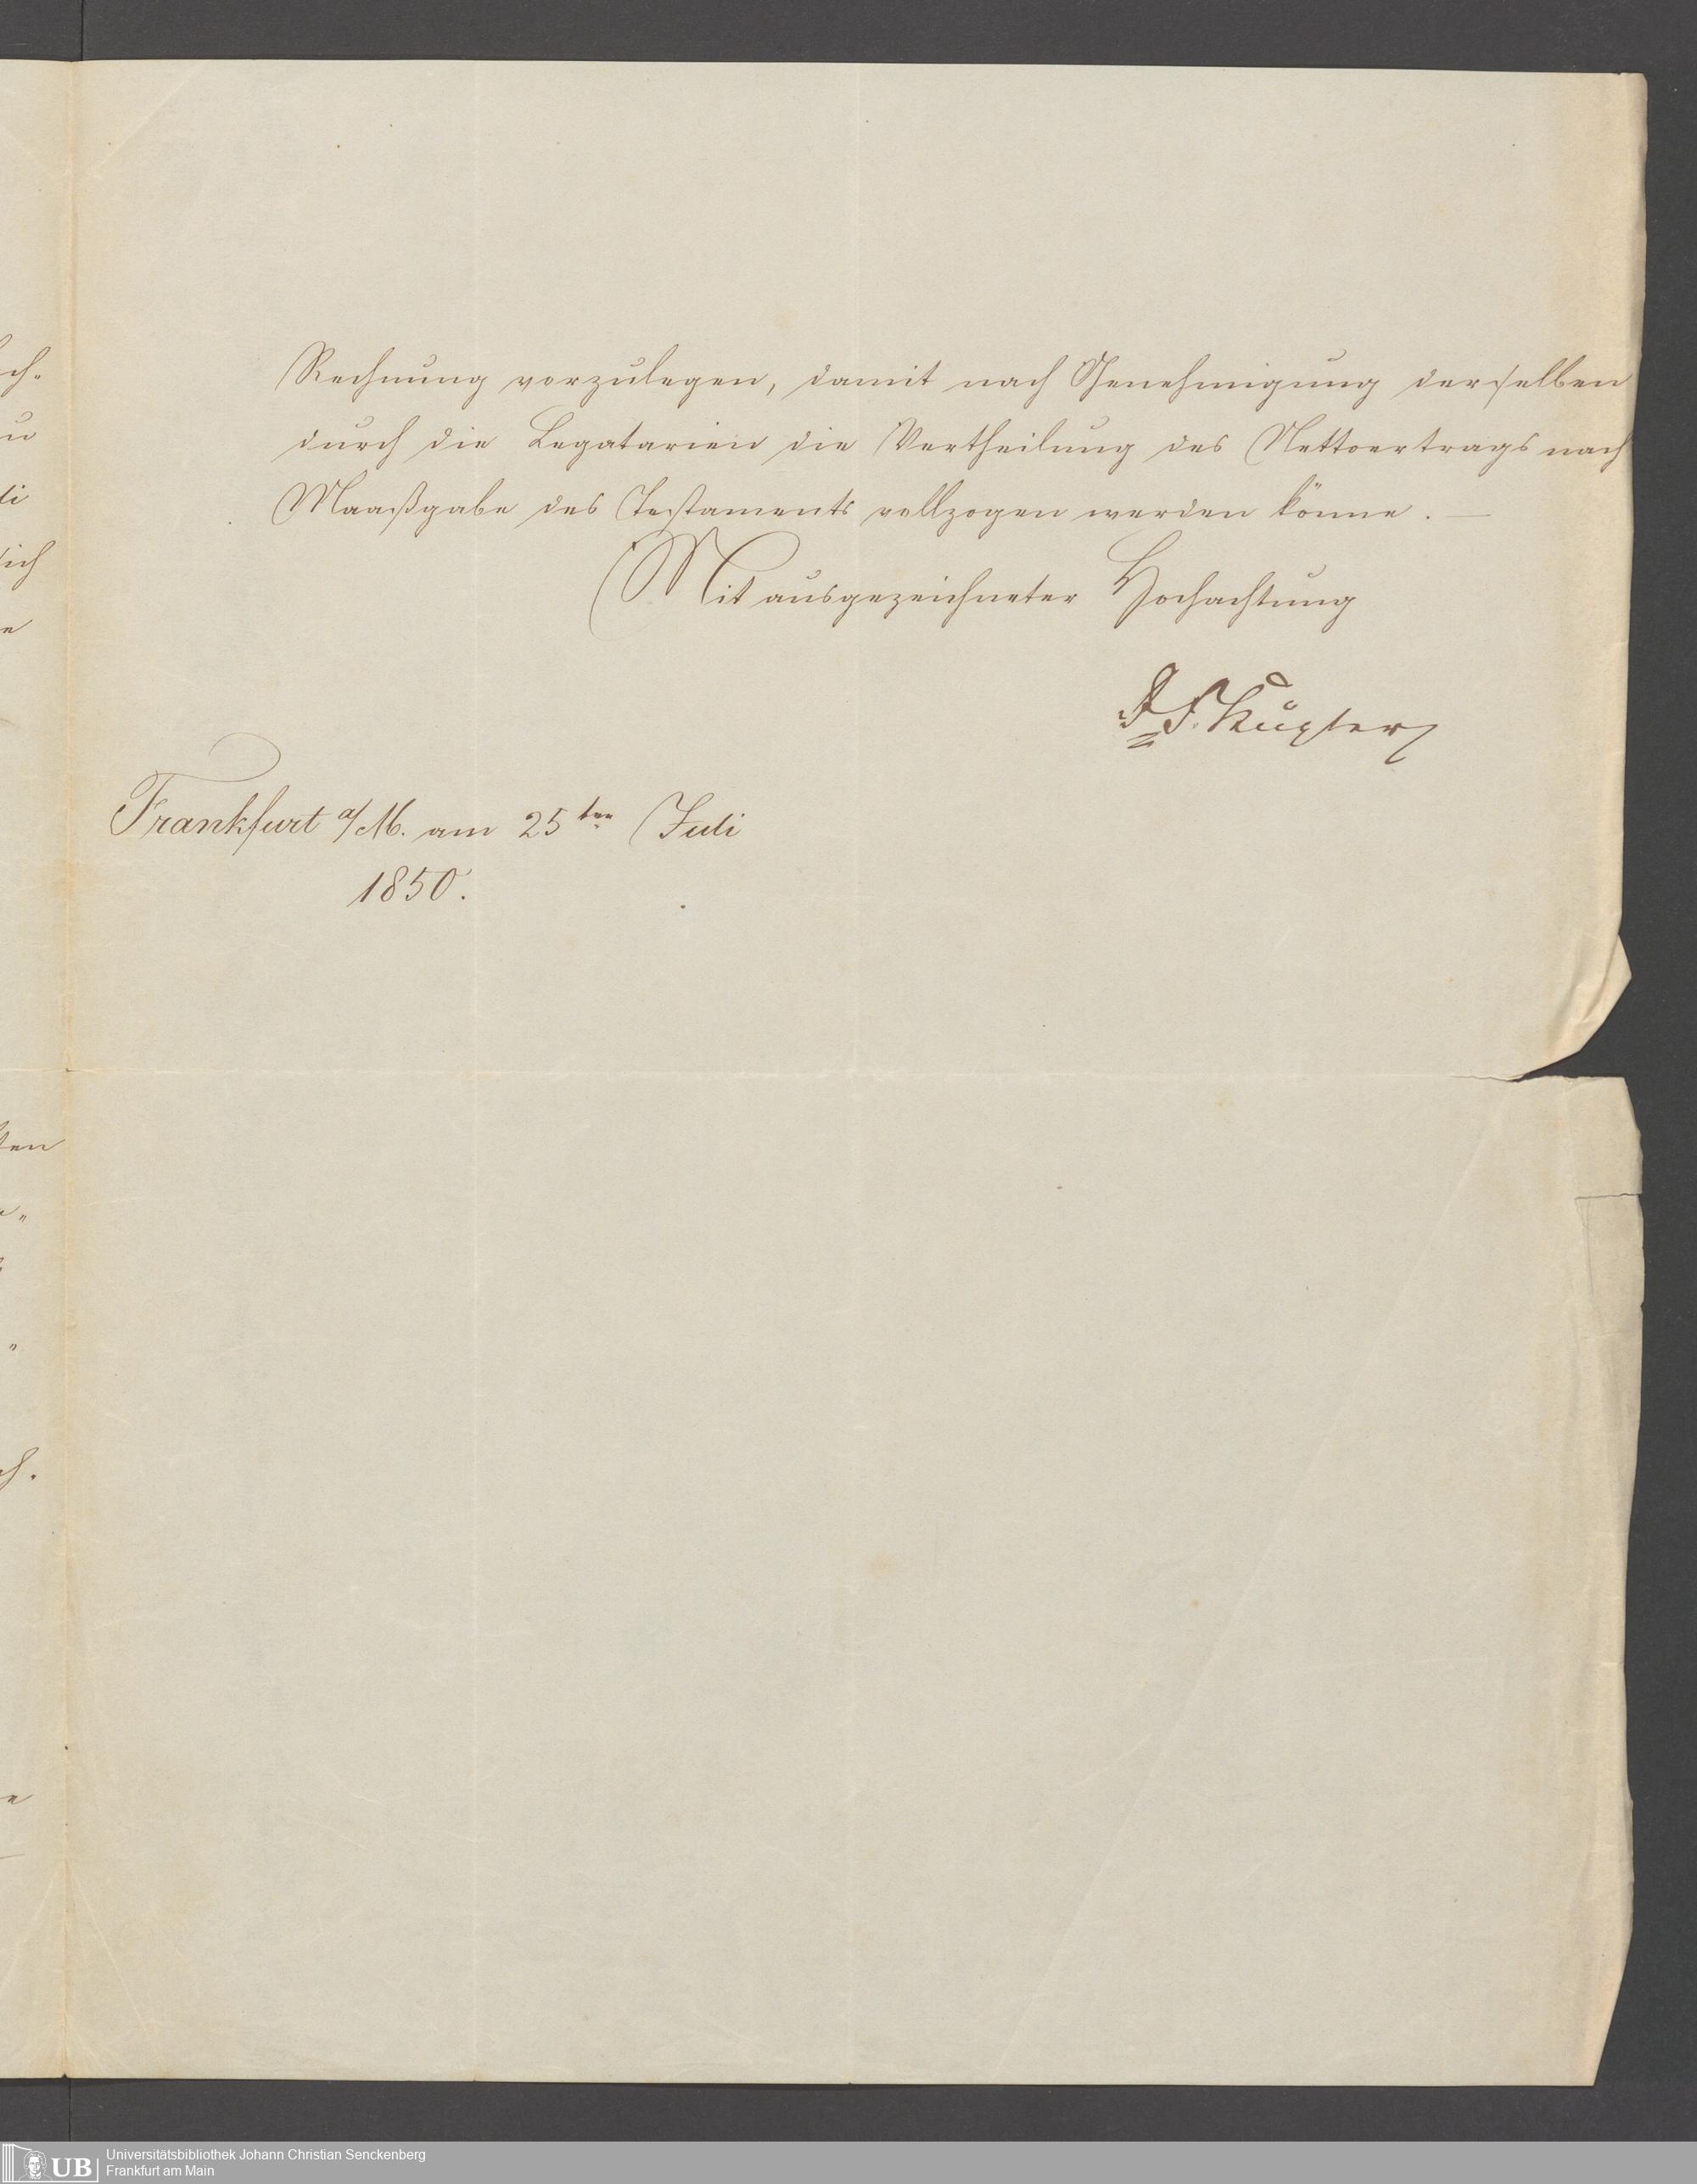 Rechnung vorzulegen, damit nach Genehmigung derselben
durch die Legatarien die Vertheilung des Nettoertrags nach
Maaßgabe des Testaments vollzogen werden könne. —
Mit ausgezeichneter Hochachtung
Frankfurt a/M. am 25ten Juli
1850.
UB
Universitätsbibliothek Johann Christian Senckenberg
Frankfurt am Main